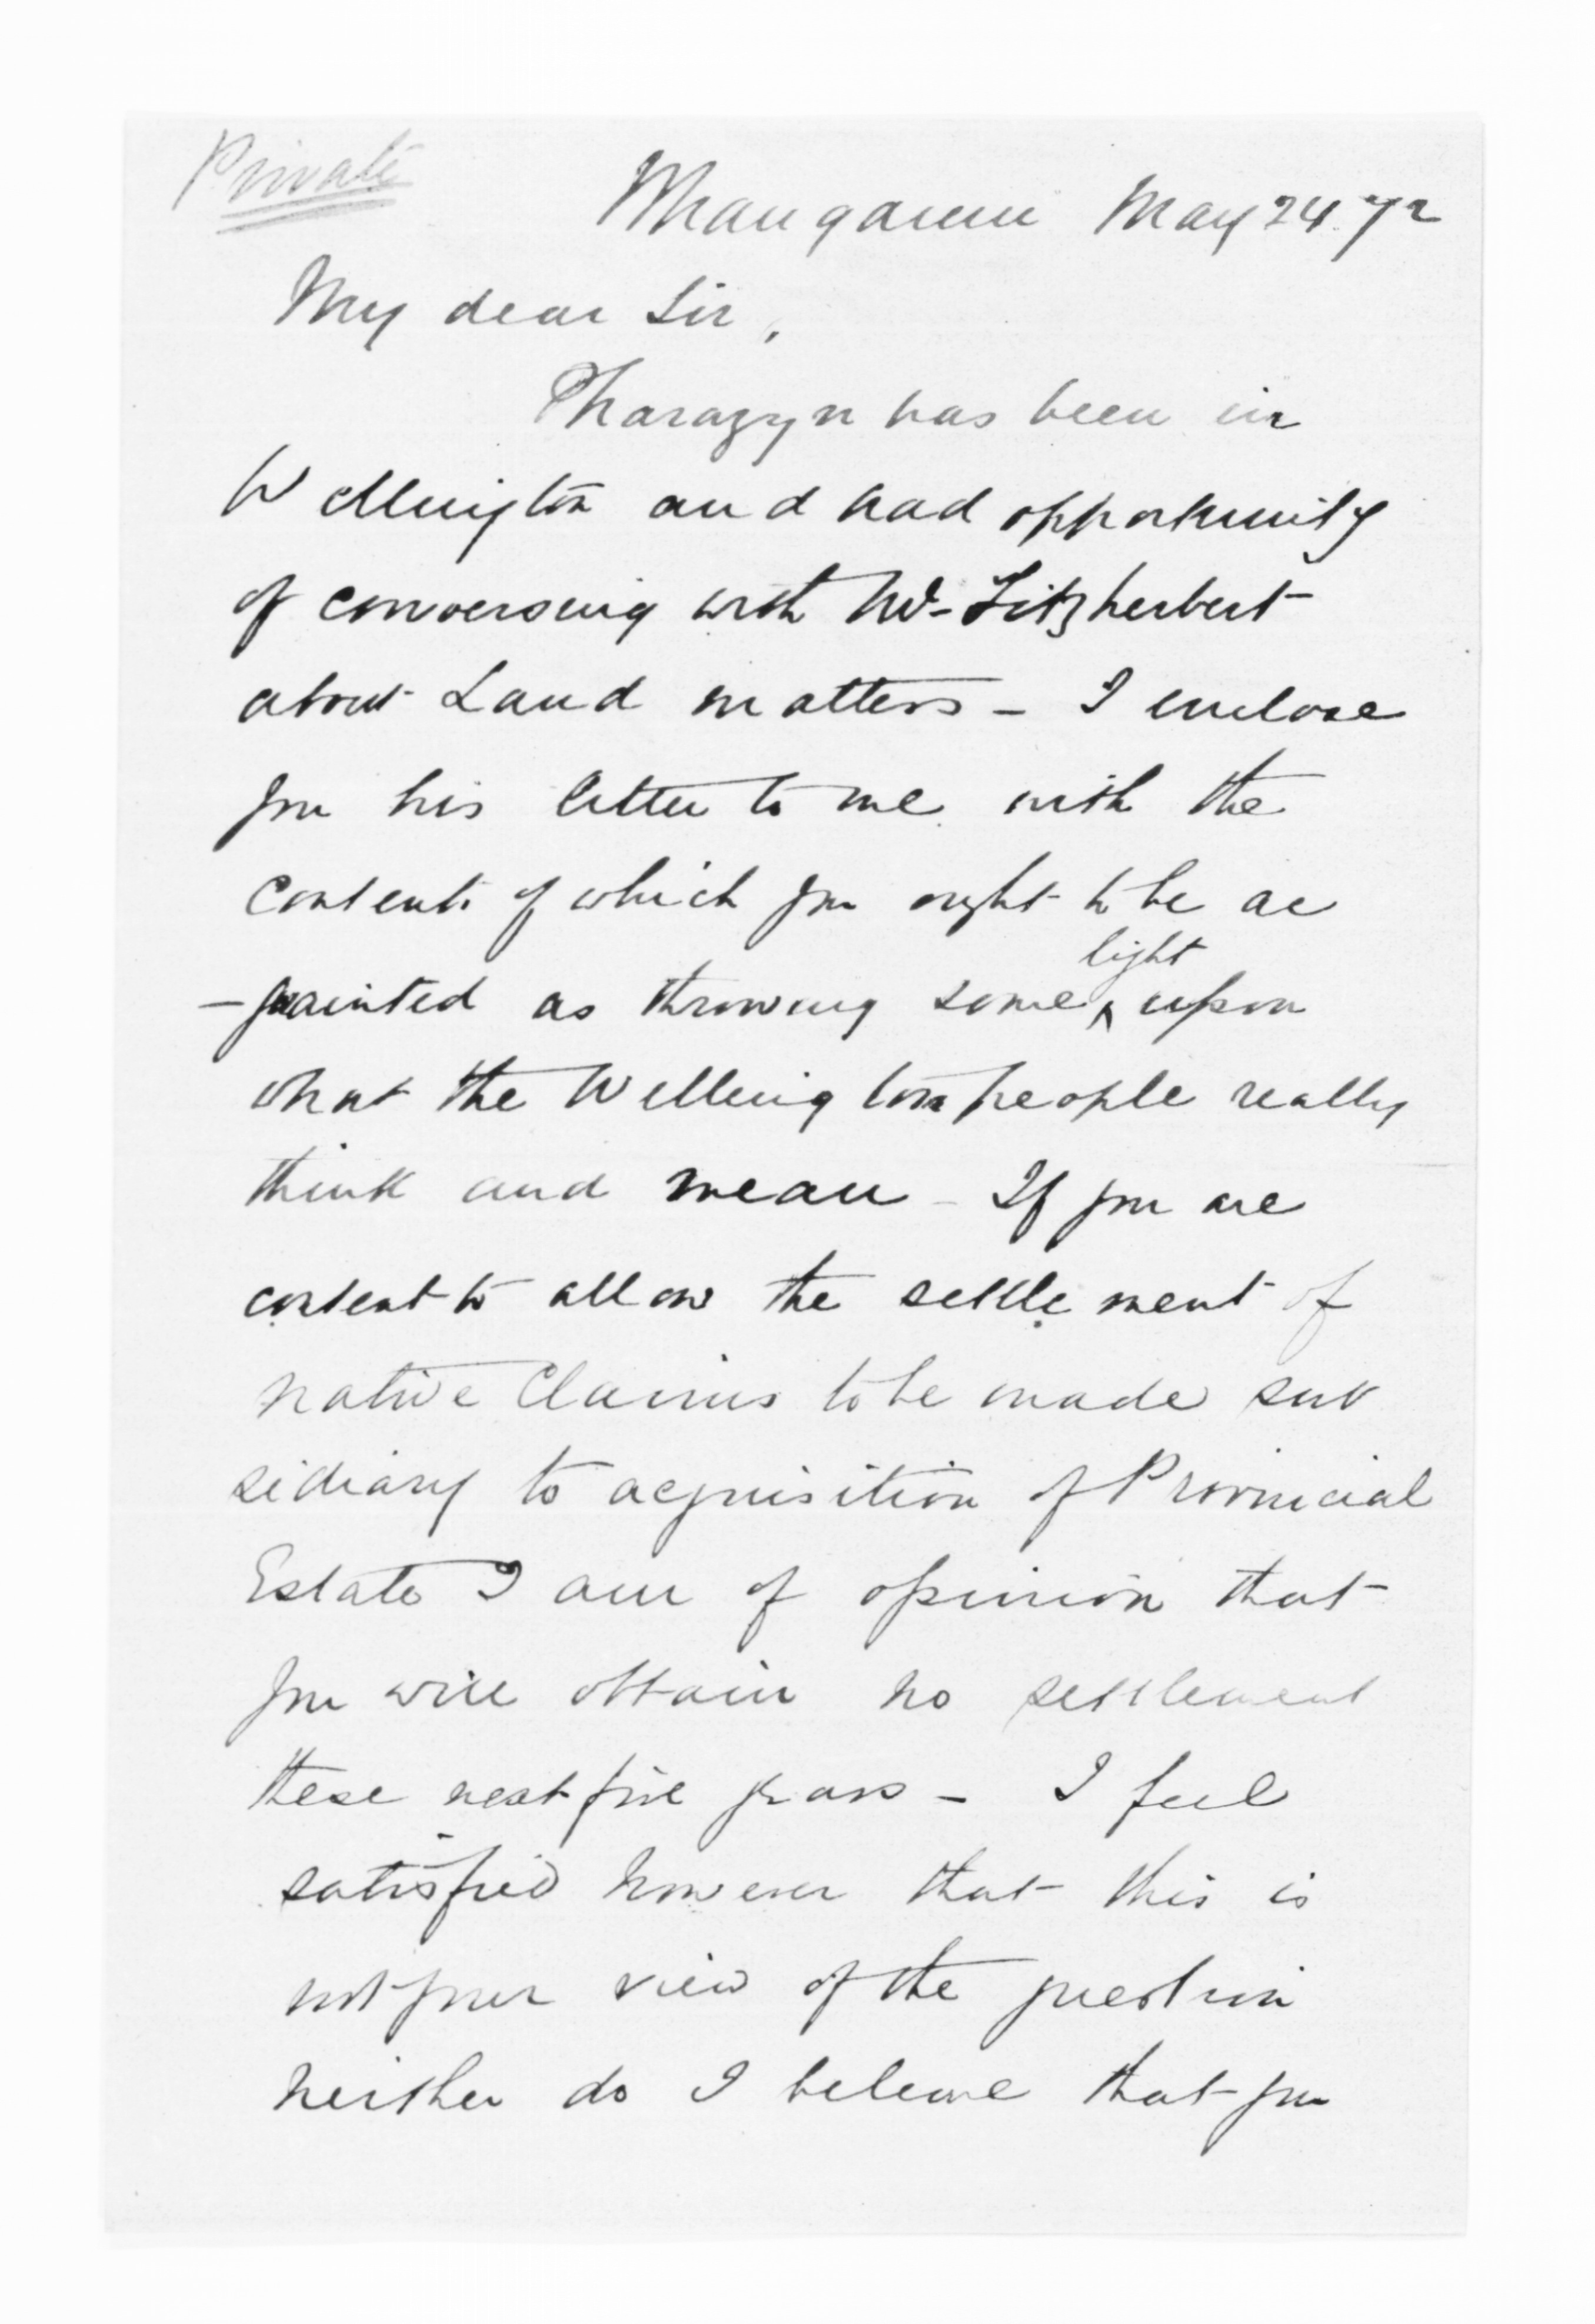 Private
Whanganui May 24. 72
My dear Sir,
Pharazyn has been in
Wellington and had opportunity
of conversing with Mr Fitzherbert
about Land matters - I enclose
you his letter to me with the
contents of which you ought to be ac
-quainted as throwing some light upon
what the Wellington people really
think and mean - If you are
content to allow the settlement of
native Claims to be made sub
sidiary to acquisition of Provincial
Estate I am of opinion that
you will obtain no settlement
these next five years - I feel
satisfied however that this is
not your view of the question
neither do I believe that you